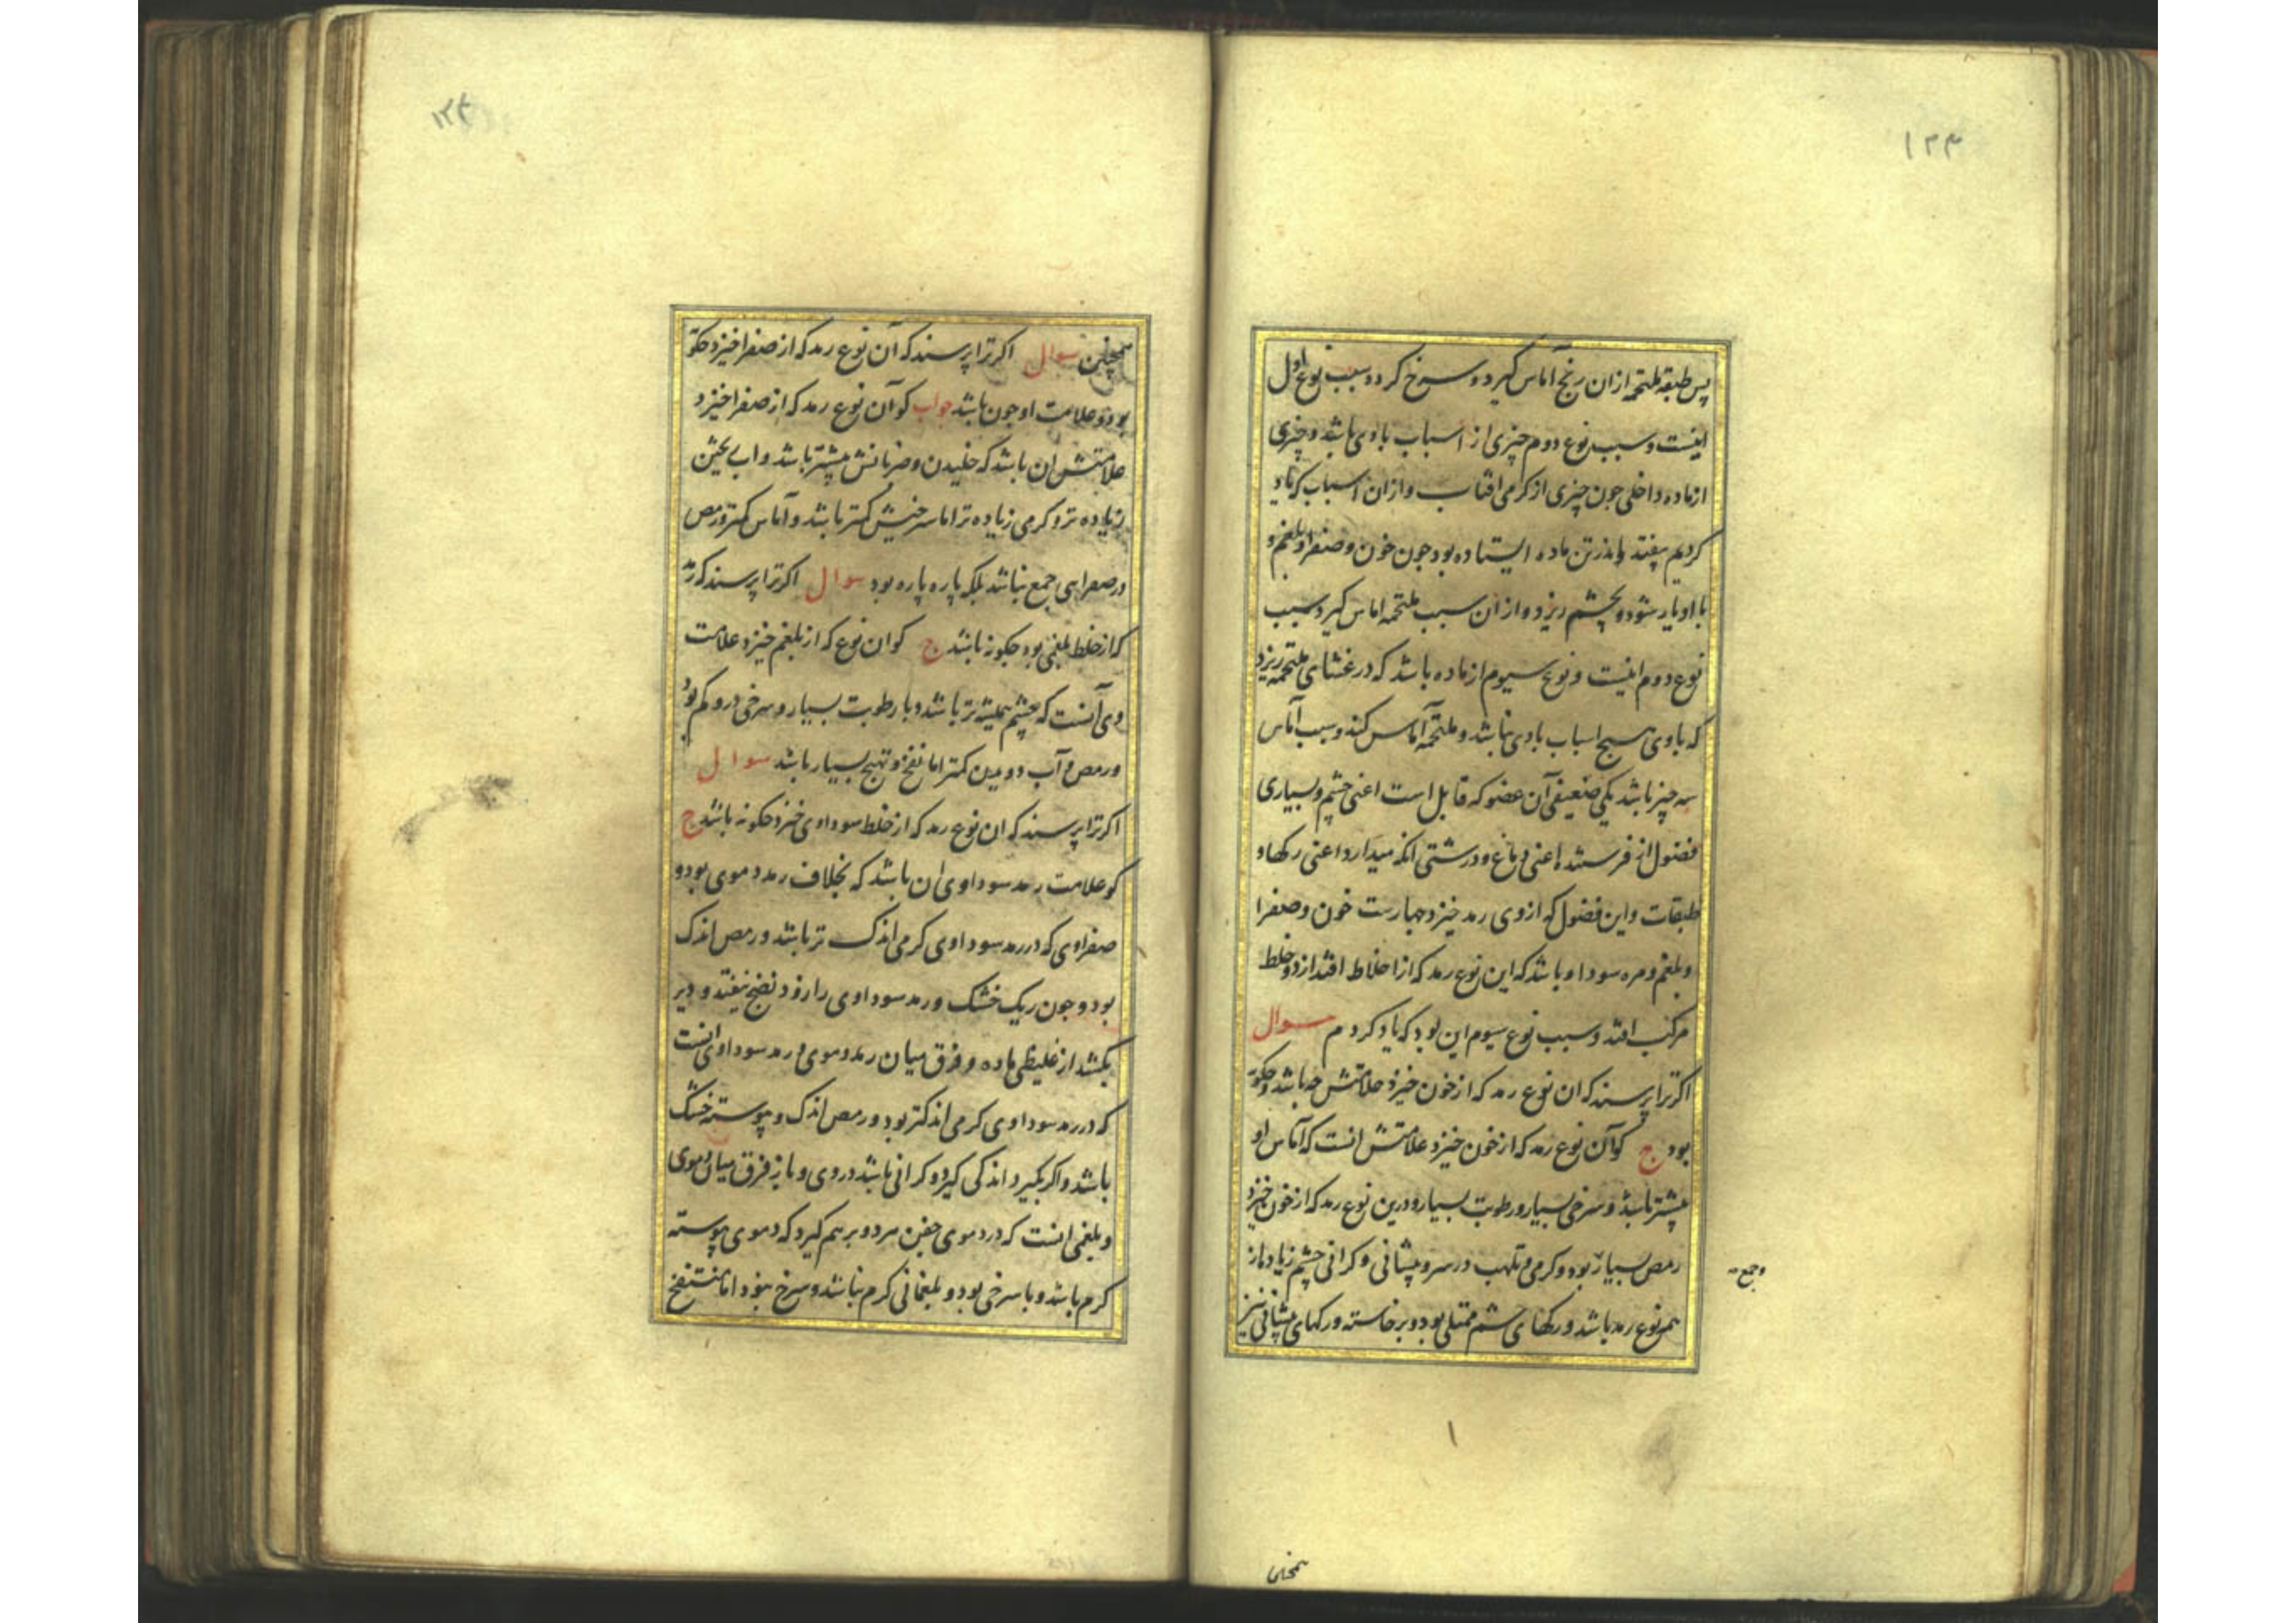 ۱۲۳
پس طبقه ملتحمه ازان رنج آماس کیرد و سرخ کردد و سبب نوع اول
اینست و سبب نوع دوم چیزی از اسباب بادی باشد و چیزی
از ماده داخلی جون چیزی از کرمی افتاب و ازان اسباب که یاد
کردیم بیفتد و اندر تن ماده ایستاده بود جون خون و صفرا و بلغم و
با او یار شود و بچشم ریزد و ازان سبب ملتحمه اماس کیرد و سبب
نوع دوم اینست و نوع سیوم از ماده باشد که در غشای ملتحمه ریزد
که با وی هیچ اسباب بادی نباشد و ملتحمه آماس کند و سبب آماس
سه چیز باشد یکی ضعیفی آن عضو که قابل است اعنی چشم و بسیاری
فضول از فرستنده اعنی دماغ و درشتی انکه میدارد اعنی رکها و
طبقات و این فضول که ازوی رمد خیزد چهارست خون و صفرا
و بلغم و مره سودا و باشد که این نوع رمد که از اخلاط افتد از دو خلط
مرکب افتد و سبب نوع سیوم این بود که یاد کردم سوال
اکر ترا پرسند که ان نوع رمد که از خون خیزد علامتش چه باشد و چکونه
بود ج کو آن نوع رمد که از خون خیزد علامتش انست که آماس او
بیشتر باشد و سرخی بسیار و رطوبت بسیار و درین نوع رمد که از خون خیزد
رمص بسیار بود و کرمی و تلهب در سر و پیشانی و کرانی چشم زیاد از
همه نوع رمد باشد و رکهای چشم ممتلی بود و برخاسته و رکهای پیشانی نیز
وجع
همچنین
۱۲۴
همچنین سوال اکر ترا پرسند که آن نوع رمد که از صفرا خیزد چکونه
بود و علامت او چون باشد جواب کو آن نوع رمد که از صفرا خیزد
علامتش ان باشد که خلیدن و ضربانش بیشتر باشد و اب چشمش
زیاده تر و کرمی زیاده تر اما سرخیش کمتر باشد و آماس کمتر و رمص
در صفرایی جمع نباشد بلکه پاره پاره بود سوال اکر ترا پرسند که رمد
که از خلط بلغمی بود چکونه باشد ج کو ان نوع که از بلغم خیزد علامت
وی آنست که چشم همیشه تر باشد و با رطوبت بسیار و سرخی درو کم بود
و رمص و آب دویدن کمتر اما نفخ و تهیج بسیار باشد سوال
اکر ترا پرسند که ان نوع رمد که از خلط سوداوی خیزد چکونه باشد ج
کو علامت رمد سوداوی ان باشد که بخلاف رمد دموی بود و
صفراوی که در رمد سوداوی کرمی اندک تر باشد و رمص اندک
بود و چون ریک خشک و رمد سوداوی را زود نضج نیفتد و دیر
بکشد از غلیظی ماده و فرق میان رمد دموی و رمد سوداوی انست
که در رمد سوداوی کرمی اندکتر بود و رمص اندک و پیوسته خشک
باشد و اکر بکیرد اندکی کیرد و کرانی باشد در وی و باز فرق میان دموی
و بلغمی انست که در دموی جفن هر دو بر هم کیرد که دموی پیوسته
کرم باشد و با سرخی بود و بلغمانی کرم نباشد و سرخ نبود اما منتفخ